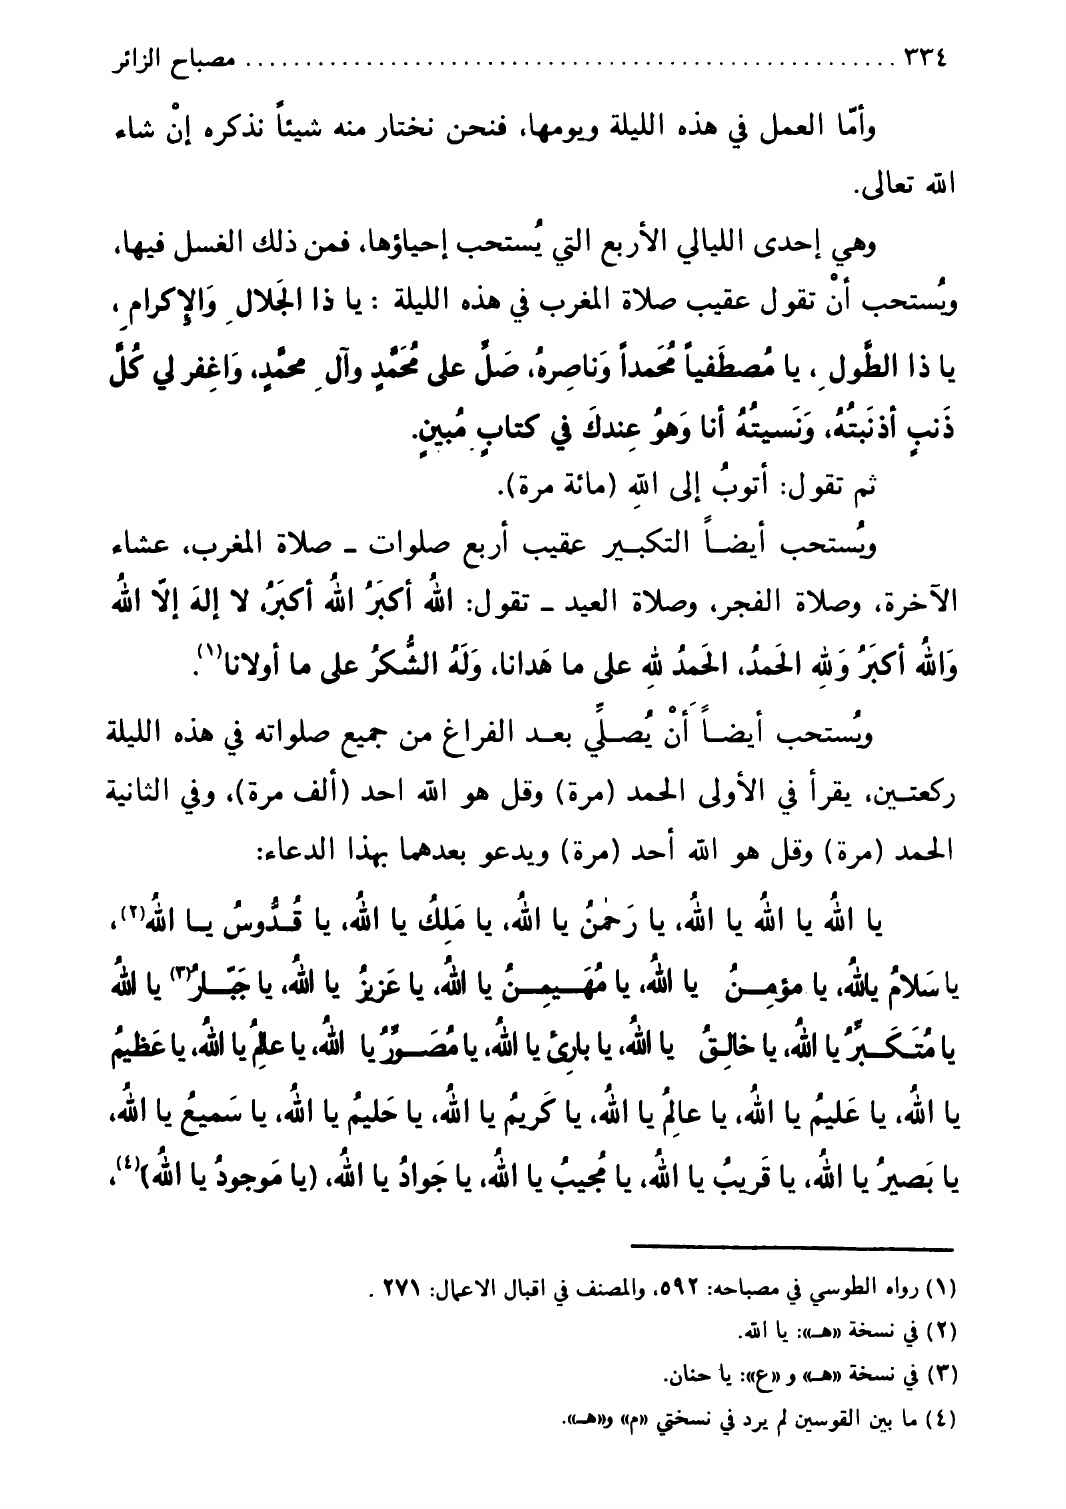 ٣٣٤ ...................................................... مصباح الزائر
وأمّا العمل في هذه الليلة ويومها، فنحن نختار منه شيئاً نذكره إنْ شاء
الله تعالى.
وهي إحدى الليالي الأربع التي يُستحب إحياؤها، فمن ذلك الغسل فيها،
ويُستحب أنْ تقول عقيب صلاة المغرب في هذه الليلة : يا ذا الجَلالِ وَالإِكرامِ،
يا ذا الطَّولِ، يا مُصطَفياً مُحَمداً وَناصِرهُ، صَلِّ على مُحَمَّدٍ وآلِ محمَّدٍ، وَاغِفر لي كُلَّ
ذَنبٍ أذنَبتُهُ، وَنَسيتُهُ أنا وَهوُ عِندكَ في كتابٍ مُبينٍ.
ثم تقول: أتوبُ إلى اللهِ (مائة مرة).
ويُستحب أيضاً التكبير عقيب أربع صلوات ـ صلاة المغرب، عشاء
الآخرة، وصلاة الفجر، وصلاة العيد ـ تقول: اللهُ أكبَرُ اللهُ أكبَرُ، لا إلهَ إلاّ اللهُ
وَاللهُ أكبَرُ وَلِلهِ الحَمدُ، الحَمدُ لِلهِ على ما هَدانا، وَلَهُ الشُّكرُ على ما أولانا(١).
ويُستحب أيضاً أنْ يُصلِّي بعد الفراغ من جميع صلواته في هذه الليلة
ركعتين، يقرأ في الأولى الحمد (مرة) وقل هو الله احد (ألف مرة)، وفي الثانية
الحمد (مرة) وقل هو الله أحد (مرة) ويدعو بعدهما بهذا الدعاء:
يا اللهُ يا اللهُ يا اللهُ، يا رَحمٰنُ يا اللهُ، يا مَلِكُ يا اللهُ، يا قُدُّوسُ يا اللهُ(٢)،
يا سَلامُ ياللهُ، يا مؤمِنُ يا اللهُ، يا مُهَيمِنُ يا اللهُ، يا عَزيزُ يا اللهُ، يا جَبّارُ(٣) يا اللهُ
يا مُتَكَبِّرُ يا اللهُ، يا خالِقُ يا اللهُ، يا بارِئُ يا اللهُ، يا مُصَوِّرُ يا اللهُ، يا عالِمُ يا اللهُ، يا عَظيمُ
يا اللهُ، يا عَليمُ يا اللهُ، يا عالِمُ يا اللهُ، يا كَريمُ يا اللهُ، يا حَليمُ يا اللهُ، يا سَميعُ يا اللهُ،
يا بَصيرُ يا اللهُ، يا قَريبُ يا اللهُ، يا مُجيبُ يا اللهُ، يا جَوادُ يا اللهُ، (يا مَوجودُ يا اللهُ)(٤)،
(١) رواه الطوسي في مصباحه: ٥٩٢، والمصنف في اقبال الاعمال: ٢٧١ .
(٢) في نسخة «هـ»: يا الله.
(٣) في نسخة «هـ» و «ع»: يا حنان.
(٤) ما بين القوسين لم يرد في نسختي «م» و«هـ».